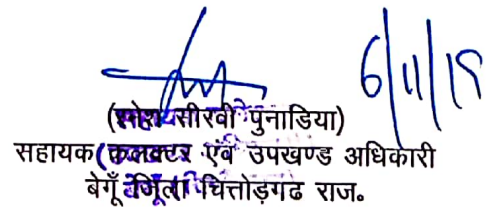 6/11/19
(रमेश सीरवी पुनाडिया)
सहायक कलक्टर एवं उपखण्ड अधिकारी
बेगूँ जिला चित्तोड़गढ राज.